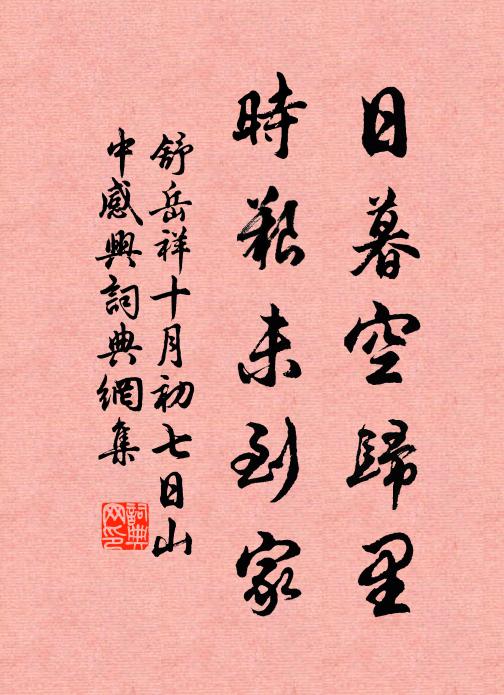 日暮空歸里
時艱未到家
舒岳祥十月初七日山
中感興詞典網集
詞典
网印